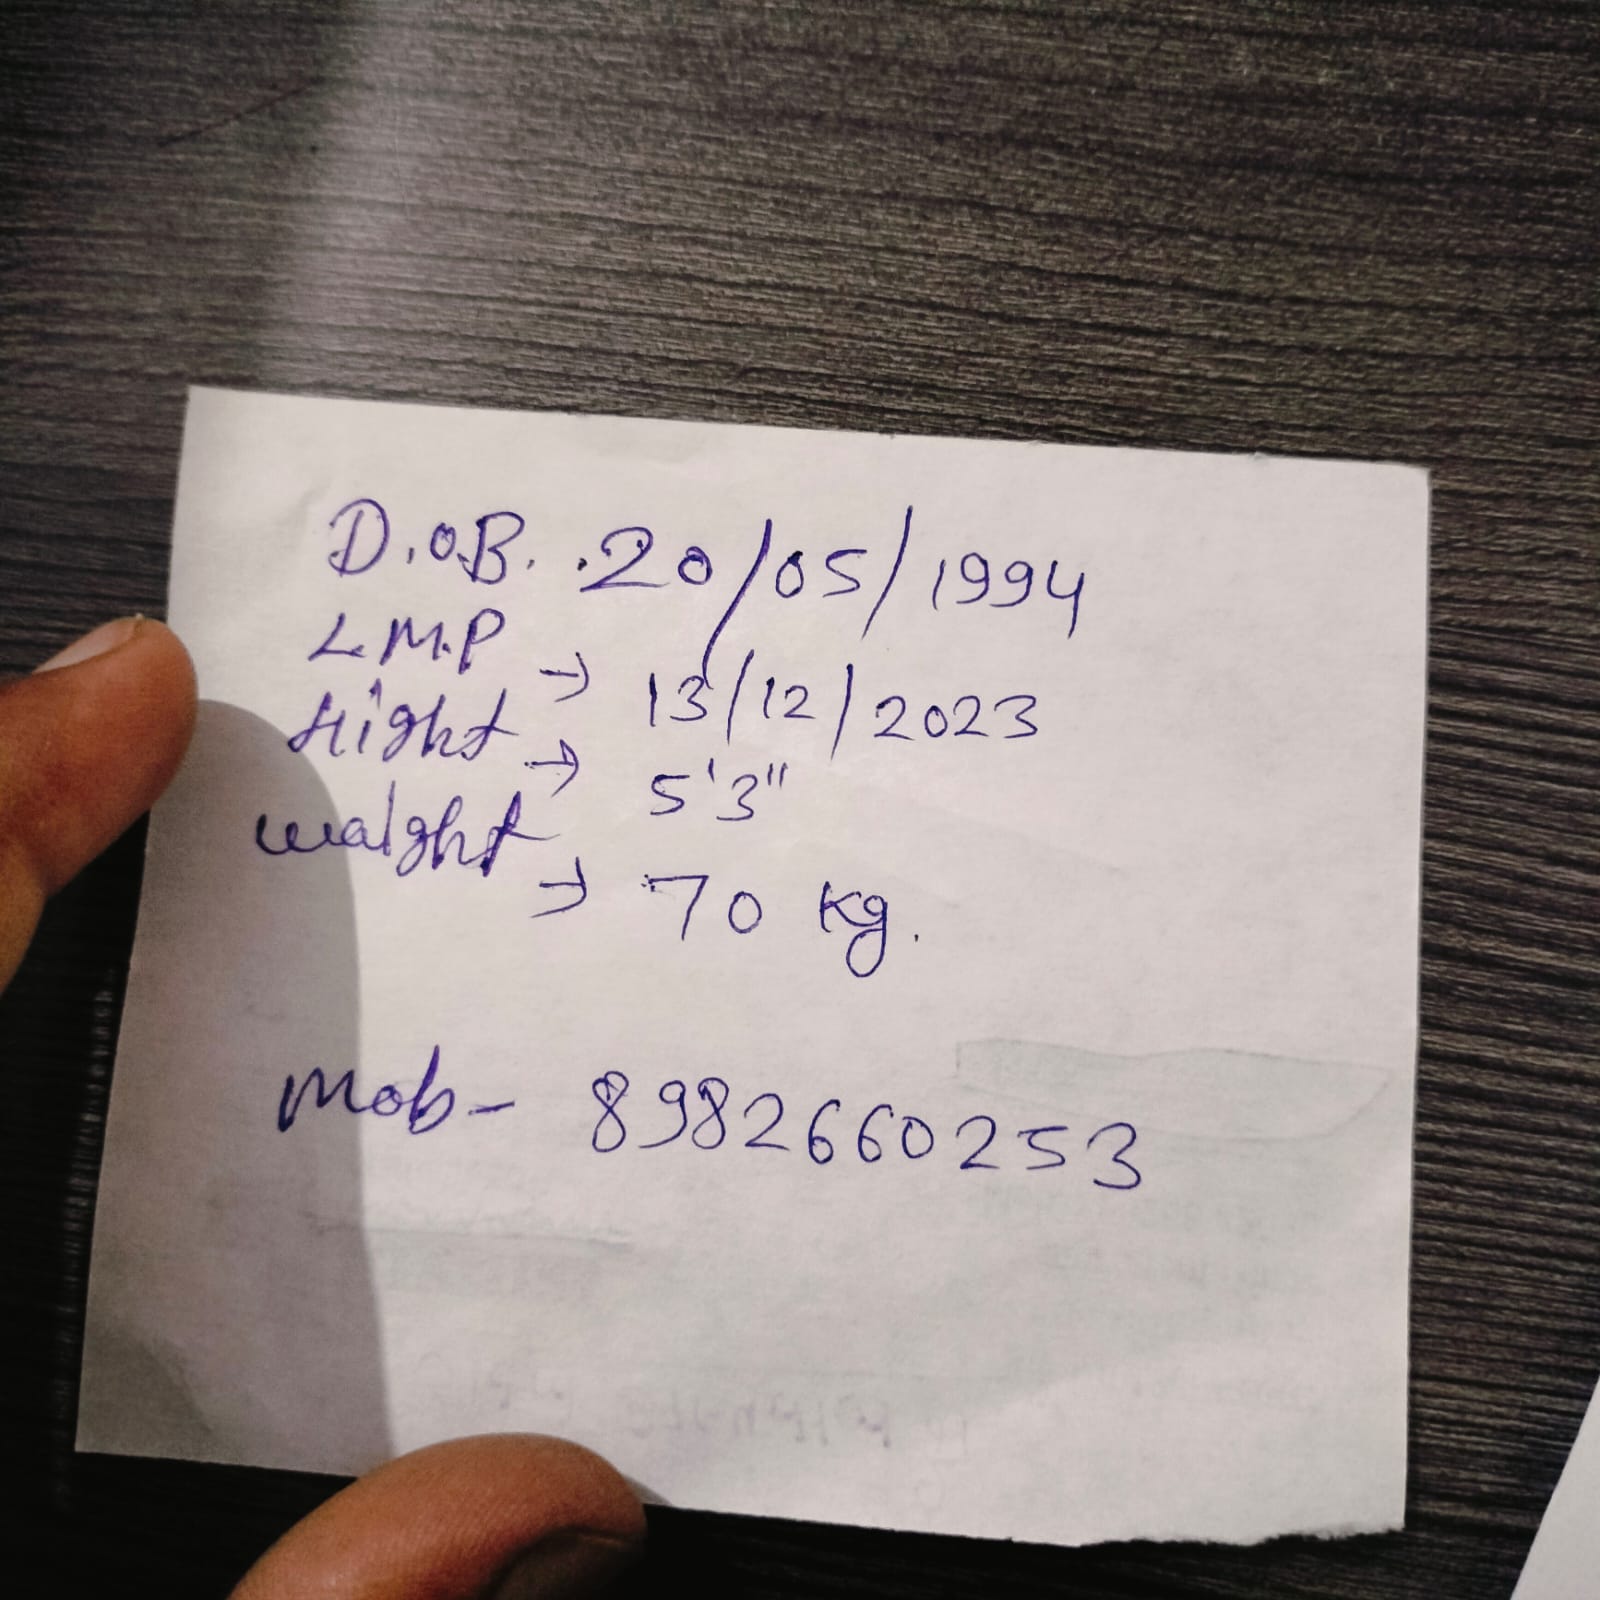 D.O.B. . 20/05/1994
L.M.P → 13/12/2023
Hight → 5'3"
waight → 70 kg.
Mob - 8982660253